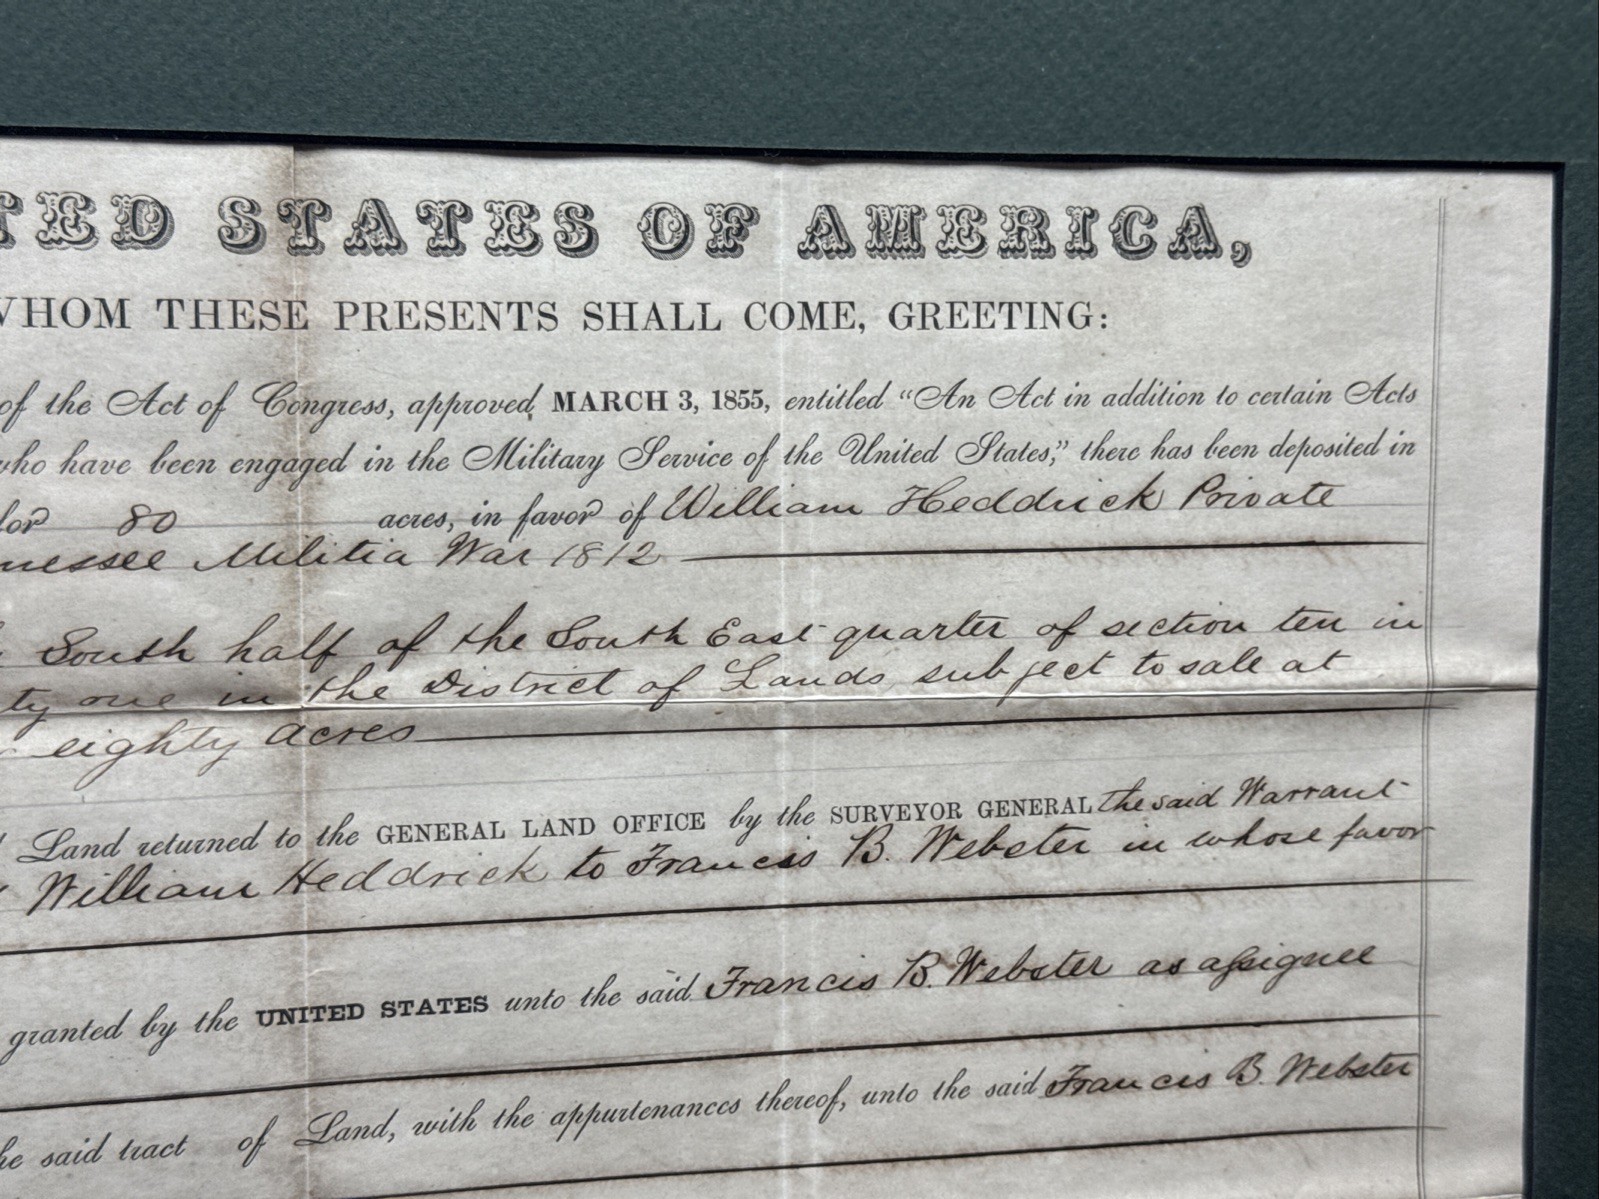 TED STATES OF AMERICA,
WHOM THESE PRESENTS SHALL COME, GREETING:
of the Act of Congress, approved, MARCH 3, 1855, entitled “An Act in addition to certain Acts
who have been engaged in the Military Service of the United States,” there has been deposited in
for 80 acres, in favor of William Heddrick Private
nessee Militia War 1812
South half of the South East quarter of section ten in
ty one in the District of Lands subject to sale at
eighty acres
Land returned to the GENERAL LAND OFFICE by the SURVEYOR GENERAL the said Warrant
William Heddrick to Francis B. Webster in whose favor
granted by the UNITED STATES unto the said Francis B. Webster as assignee
he said tract of Land, with the appurtenances thereof, unto the said Francis B. Webster